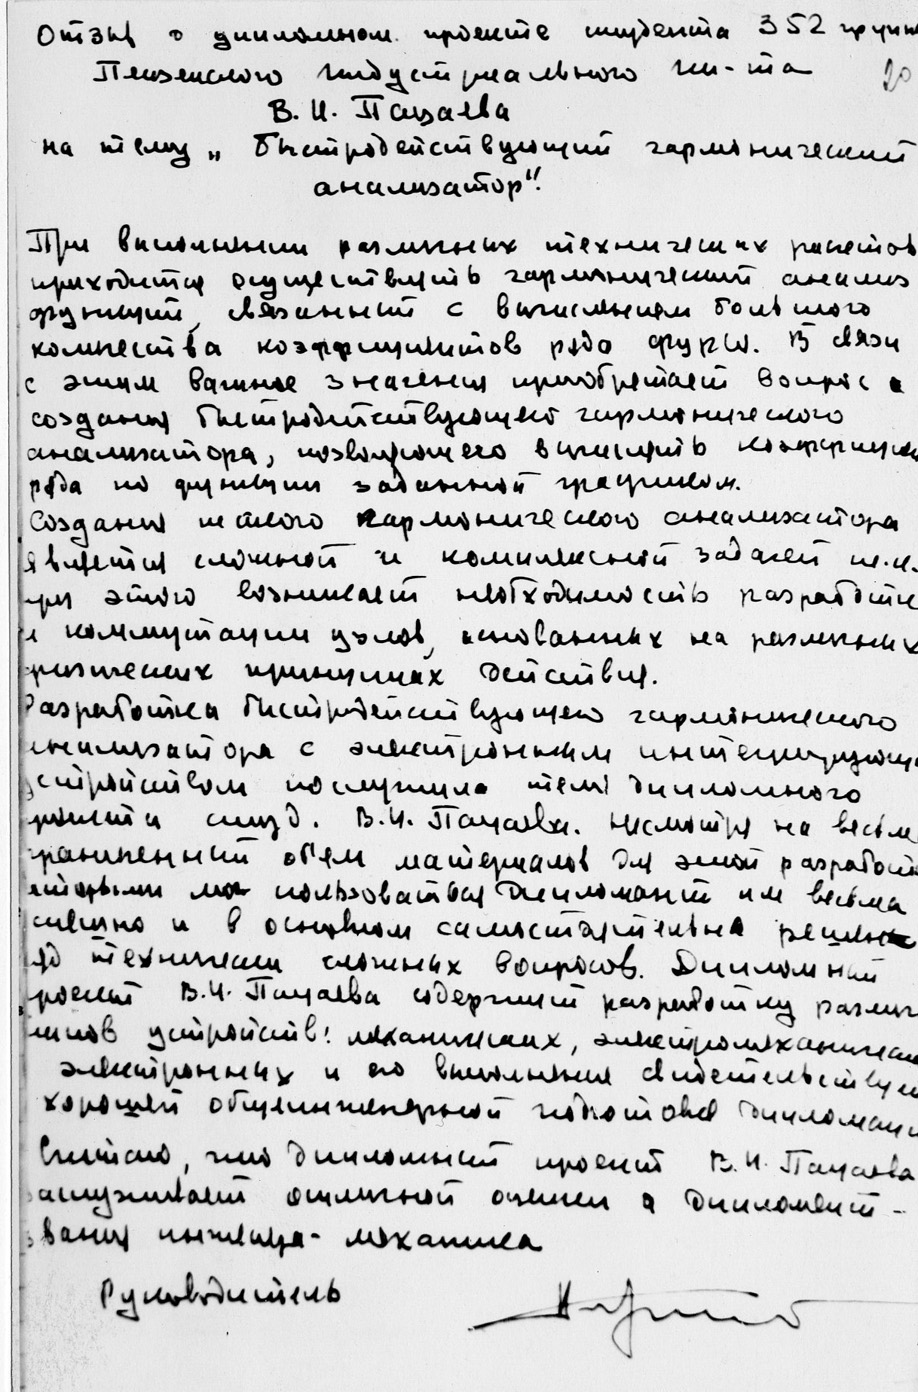 Отзыв о дипломном проекте студента 352 групп
Пензенского индустриального ин-та 20
В. И. Пацаева
на тему „Быстродействующий гармонический
анализатор".
При выполнении различных технических расчетов
приходится осуществлять гармонический анализ
функций, связанный с вычислением большого
количества коэффициентов ряда Фурье. В связи
с этим важное значение приобретает вопрос о
создания быстродействующего гармонического
анализатора, позволяющего вычислять коэффицие
ряда по функции заданной графиком.
Создание такого гармонического анализатора
является сложной и комплексной задачей т.к.
при этом возникает необходимость разработк
и коммутации узлов, основанных на различных
физических принципах действия.
Разработка быстродействующего гармонического
анализатора с электронным интегрирующ
устройством послужила темой дипломного
проекта студ. В.И. Пацаева. Несмотря на весьма
граниченный объем материалов для этой разработк
которыми мог пользоваться дипломант им весьма
успешно и в основном самостоятельно решен
ряд технически сложных вопросов. Дипломный
проект В.И. Пацаева содержит разработку различ
типов устройств: механических, электромеханически
электронных и его выполнение свидетельствует
хорошей общеинженерной подготовке дипломант
Считаю, что дипломный проект В.И. Пацаева
заслуживает отличной оценки а дипломант -
звания инженера-механика
Руководитель